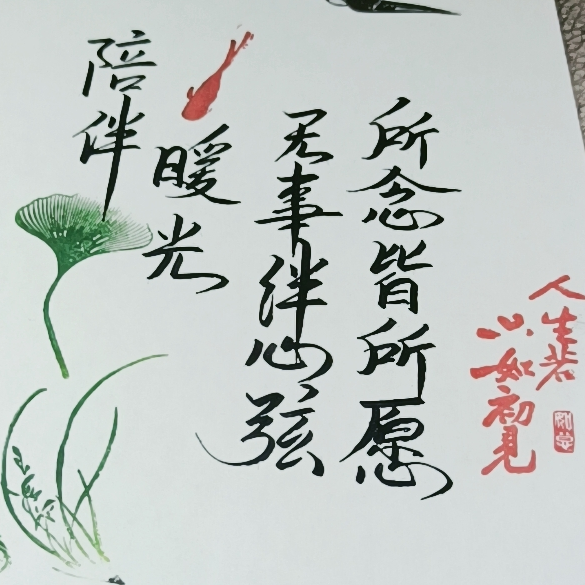 人生若
只如初见
所念皆所愿
无事绊心弦
暖光
陪伴